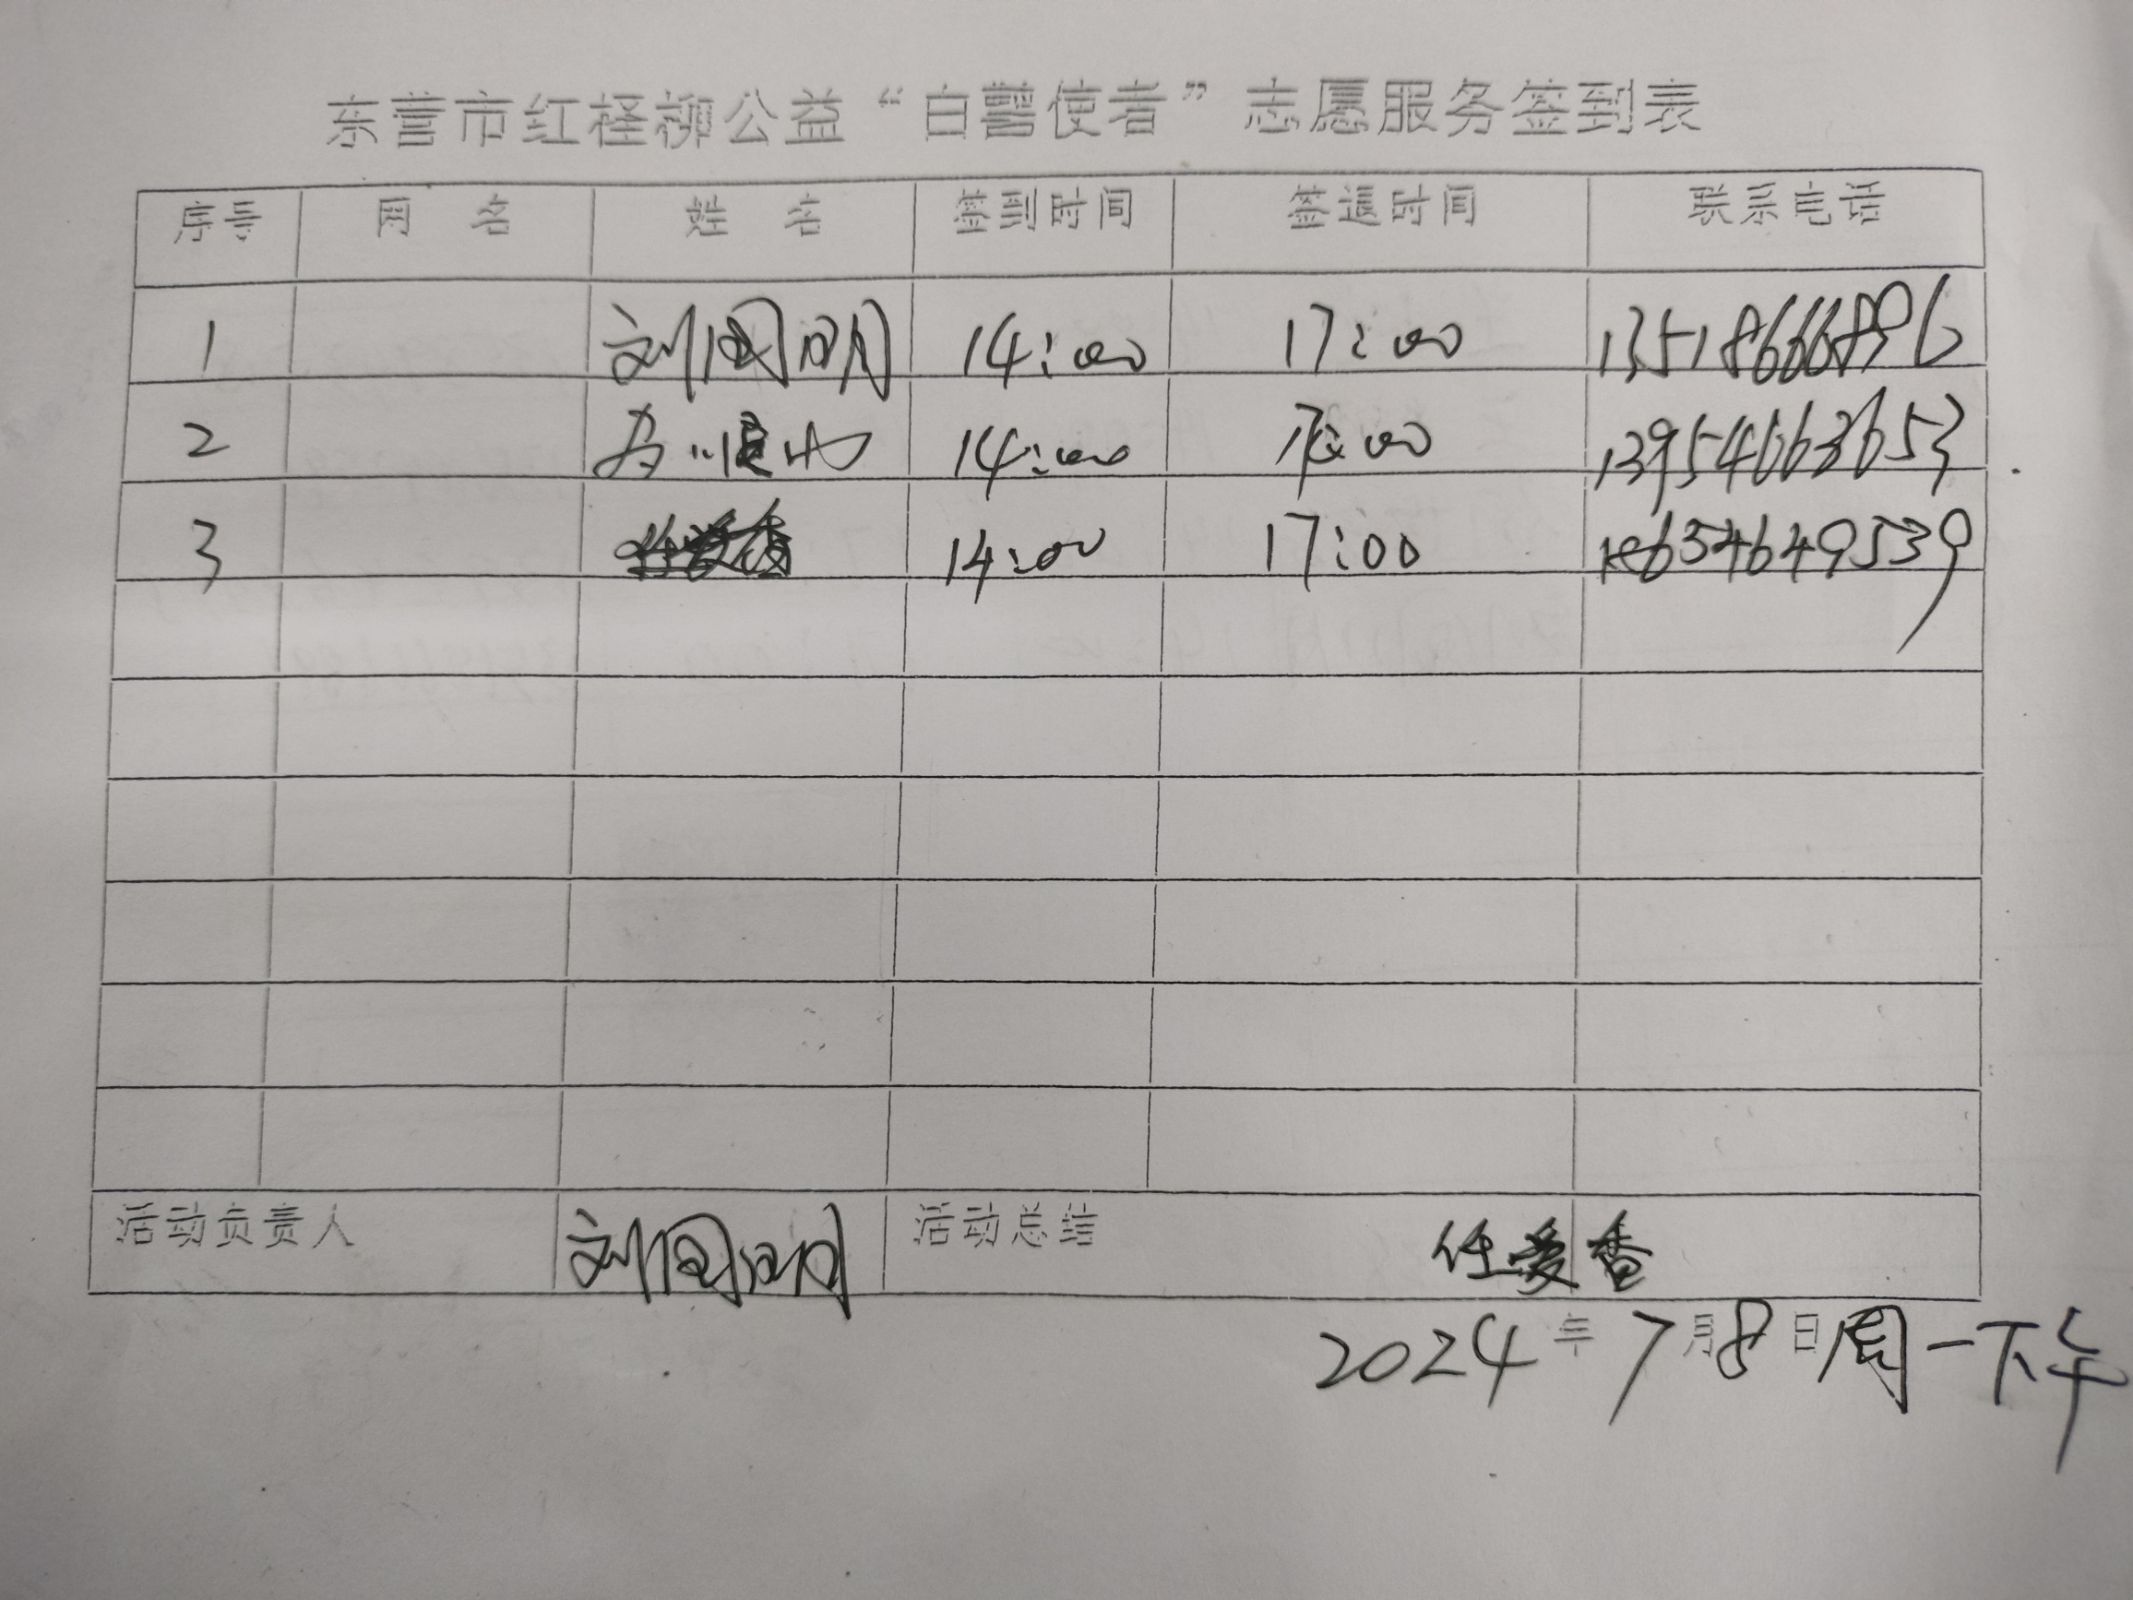 东营市红柽柳公益“白鹭使者”志愿服务签到表
序号 网 名 姓 名 签到时间 签退时间 联系电话
1 刘国明 14:00 17:00 13518666896
2 14:00 17:00 13954663653
3 任爱香 14:00 17:00 18654649539
活动负责人 刘国明 活动总结 任爱香
2024年7月8日周一下午